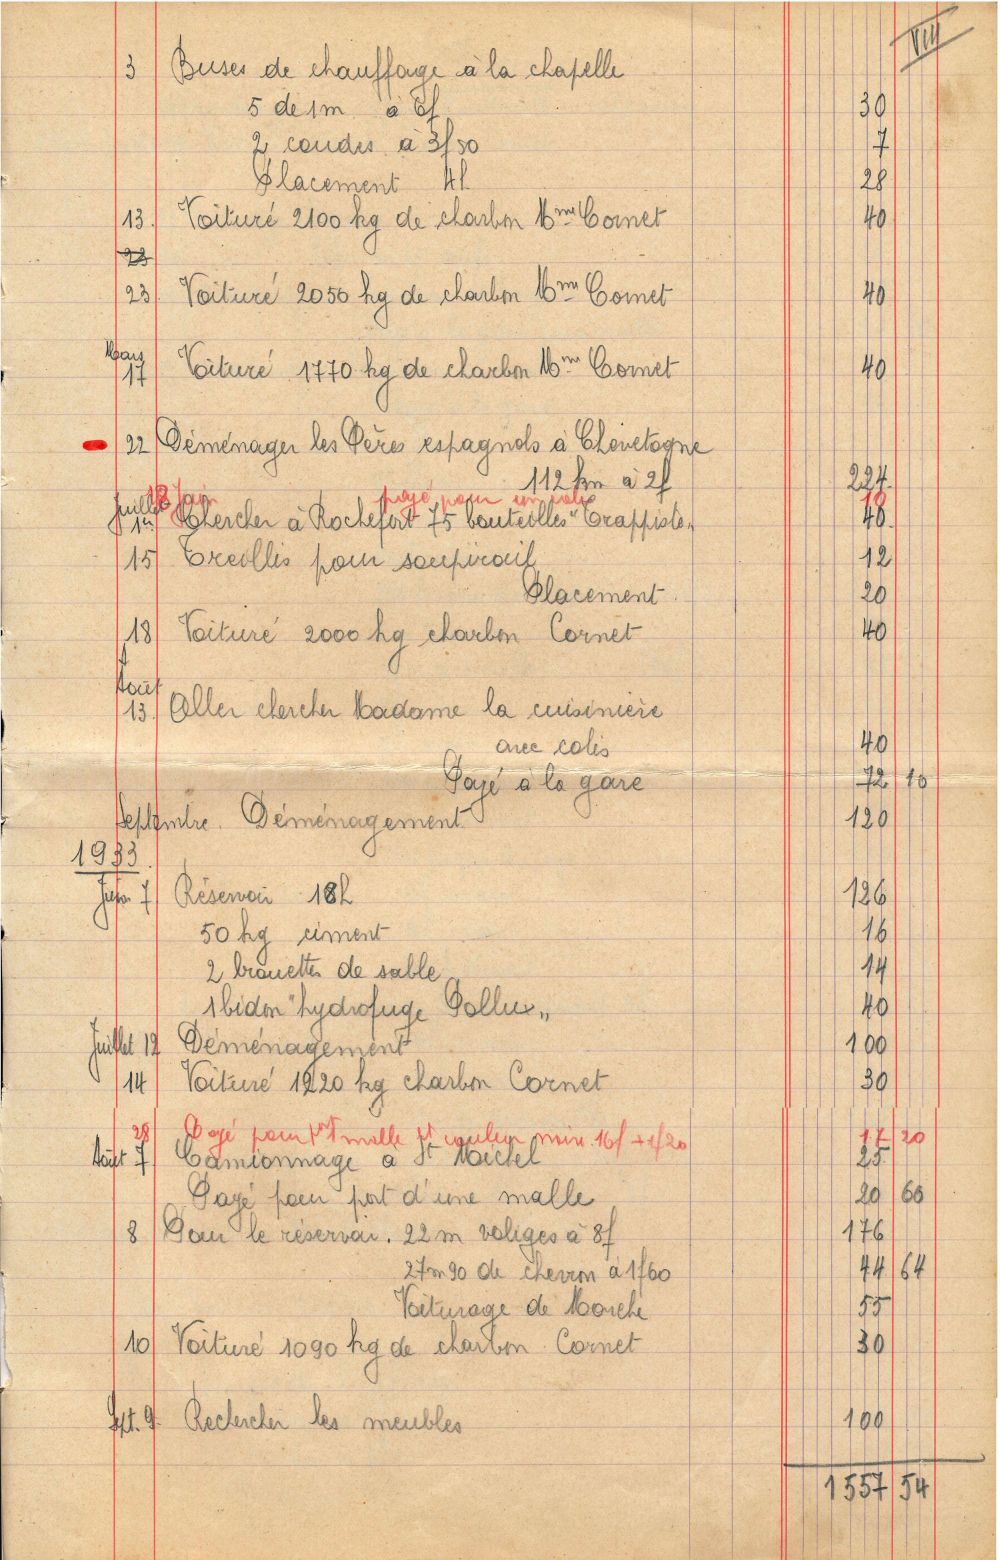 VIII
3 Buses de chauffage à la chapelle
5 de 1m à 6f 30
2 coudes à 3f50 7
Placement 4h 28
13. Voituré 2100 kg de charbon Mme Cornet 40
23
23 Voituré 2050 kg de charbon Mme Cornet 40
Mars
17 Voituré 1770 kg de charbon Mme Cornet 40
22 Déménager les Pères espagnols à Chevetogne
112 km à 2f 224.
18 Juin payé pour un colis 10
Juillet
1er Chercher à Rochefort 75 bouteilles "Trappiste„ 40.
15 Treillis pour soupirail 12
Placement 20
18 Voituré 2000 kg charbon Cornet 40
Août
13. Aller chercher Madame la cuisinière
avec colis 40
Payé à la gare 72 10
Septembre. Déménagement 120
1933.
Juin 7 Réservoir 18h 126
50 kg ciment 16
2 brouettes de sable 14
1 bidon "hydrofuge Pollux„ 40
Juillet 12 Déménagement 100
14 Voituré 1220 kg charbon Cornet 30
28 Payé pour port malle et couleur noire 16f + 1f20 17 20
Août 7 Camionnage à St Michel 25.
Payé pour port d'une malle 20 60
8 Pour le réservoir. 22 m voliges à 8f 176
27m90 de chevron à 1f60 44 64
Voiturage de Marche 55
10 Voituré 1090 kg de charbon Cornet 30
Sept. 9. Rechercher les meubles 100
1557 54